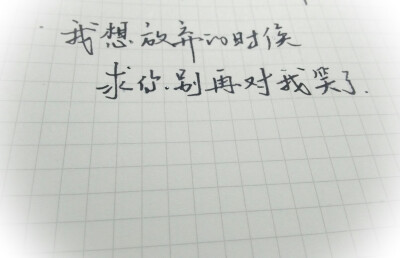 我想放弃的时候
求你.别再对我笑了.